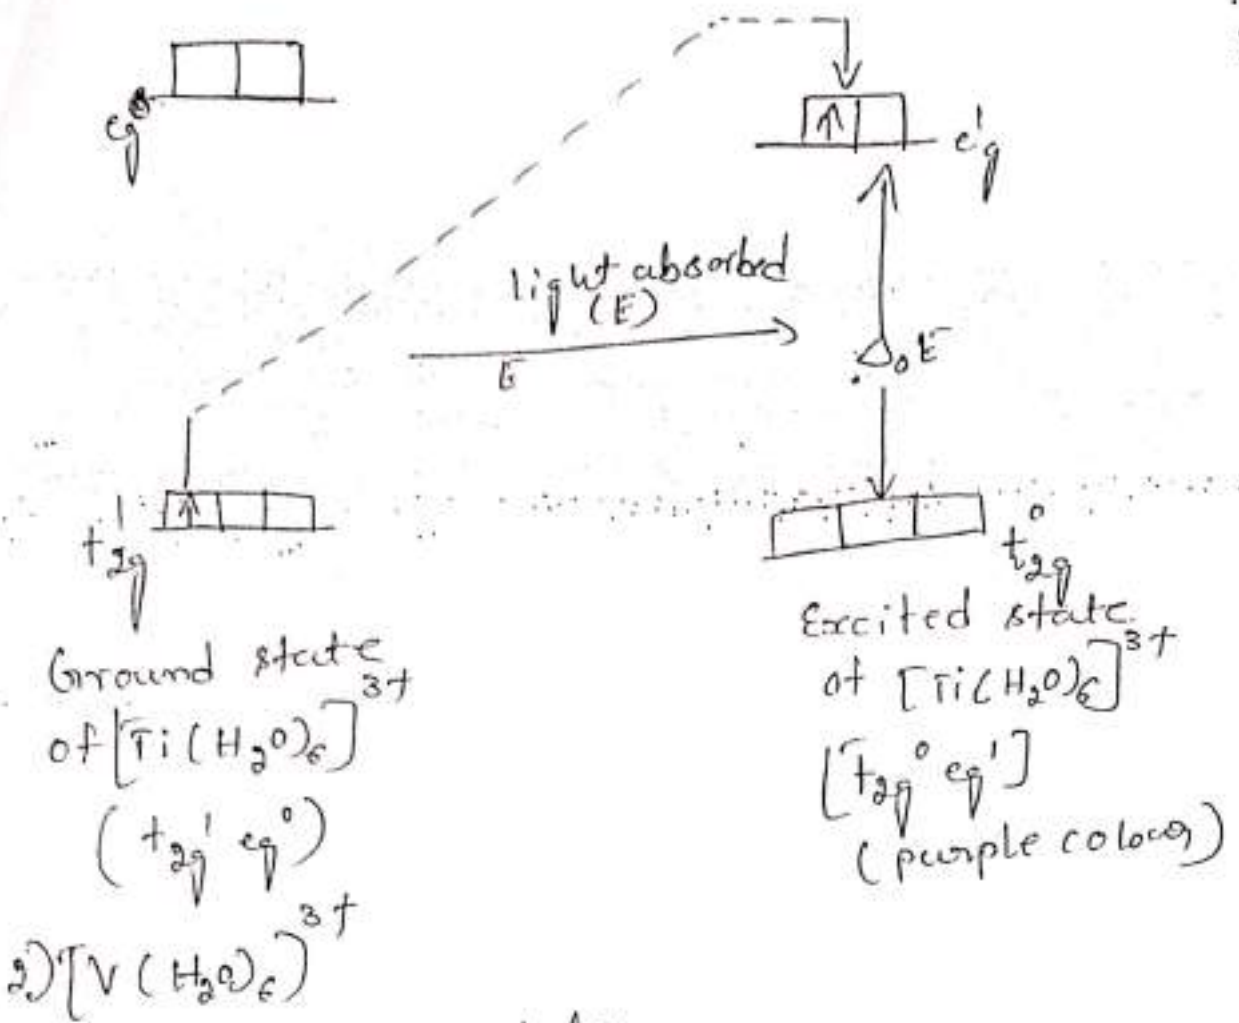 eg⁰
e¹g
light absorbed
(E)
E
Δ₀ E
t¹₂g
t⁰₂g
Ground state
of [Ti(H₂O)₆]³⁺
(t₂g¹ eg⁰)
Excited state
of [Ti(H₂O)₆]³⁺
[t₂g⁰ eg¹]
(purple colour)
2) [V(H₂O)₆)³⁺